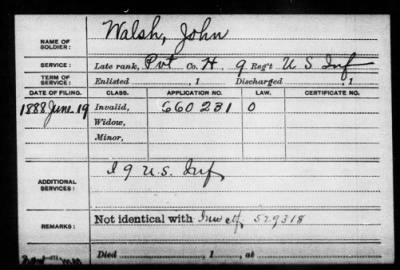 NAME OF SOLDIER: Walsh, John
SERVICE: Late rank, Pvt Co. H 9 Reg't U S Inf
TERM OF SERVICE: Enlisted , 1 Discharged , 1
DATE OF FILING. CLASS. APPLICATION NO. LAW. CERTIFICATE NO.
1888 June 19 Invalid, 660231 O
Widow,
Minor,
ADDITIONAL SERVICES: I 9 U.S. Inf
REMARKS: Not identical with Inv ctf 529318
Died , 1 , at